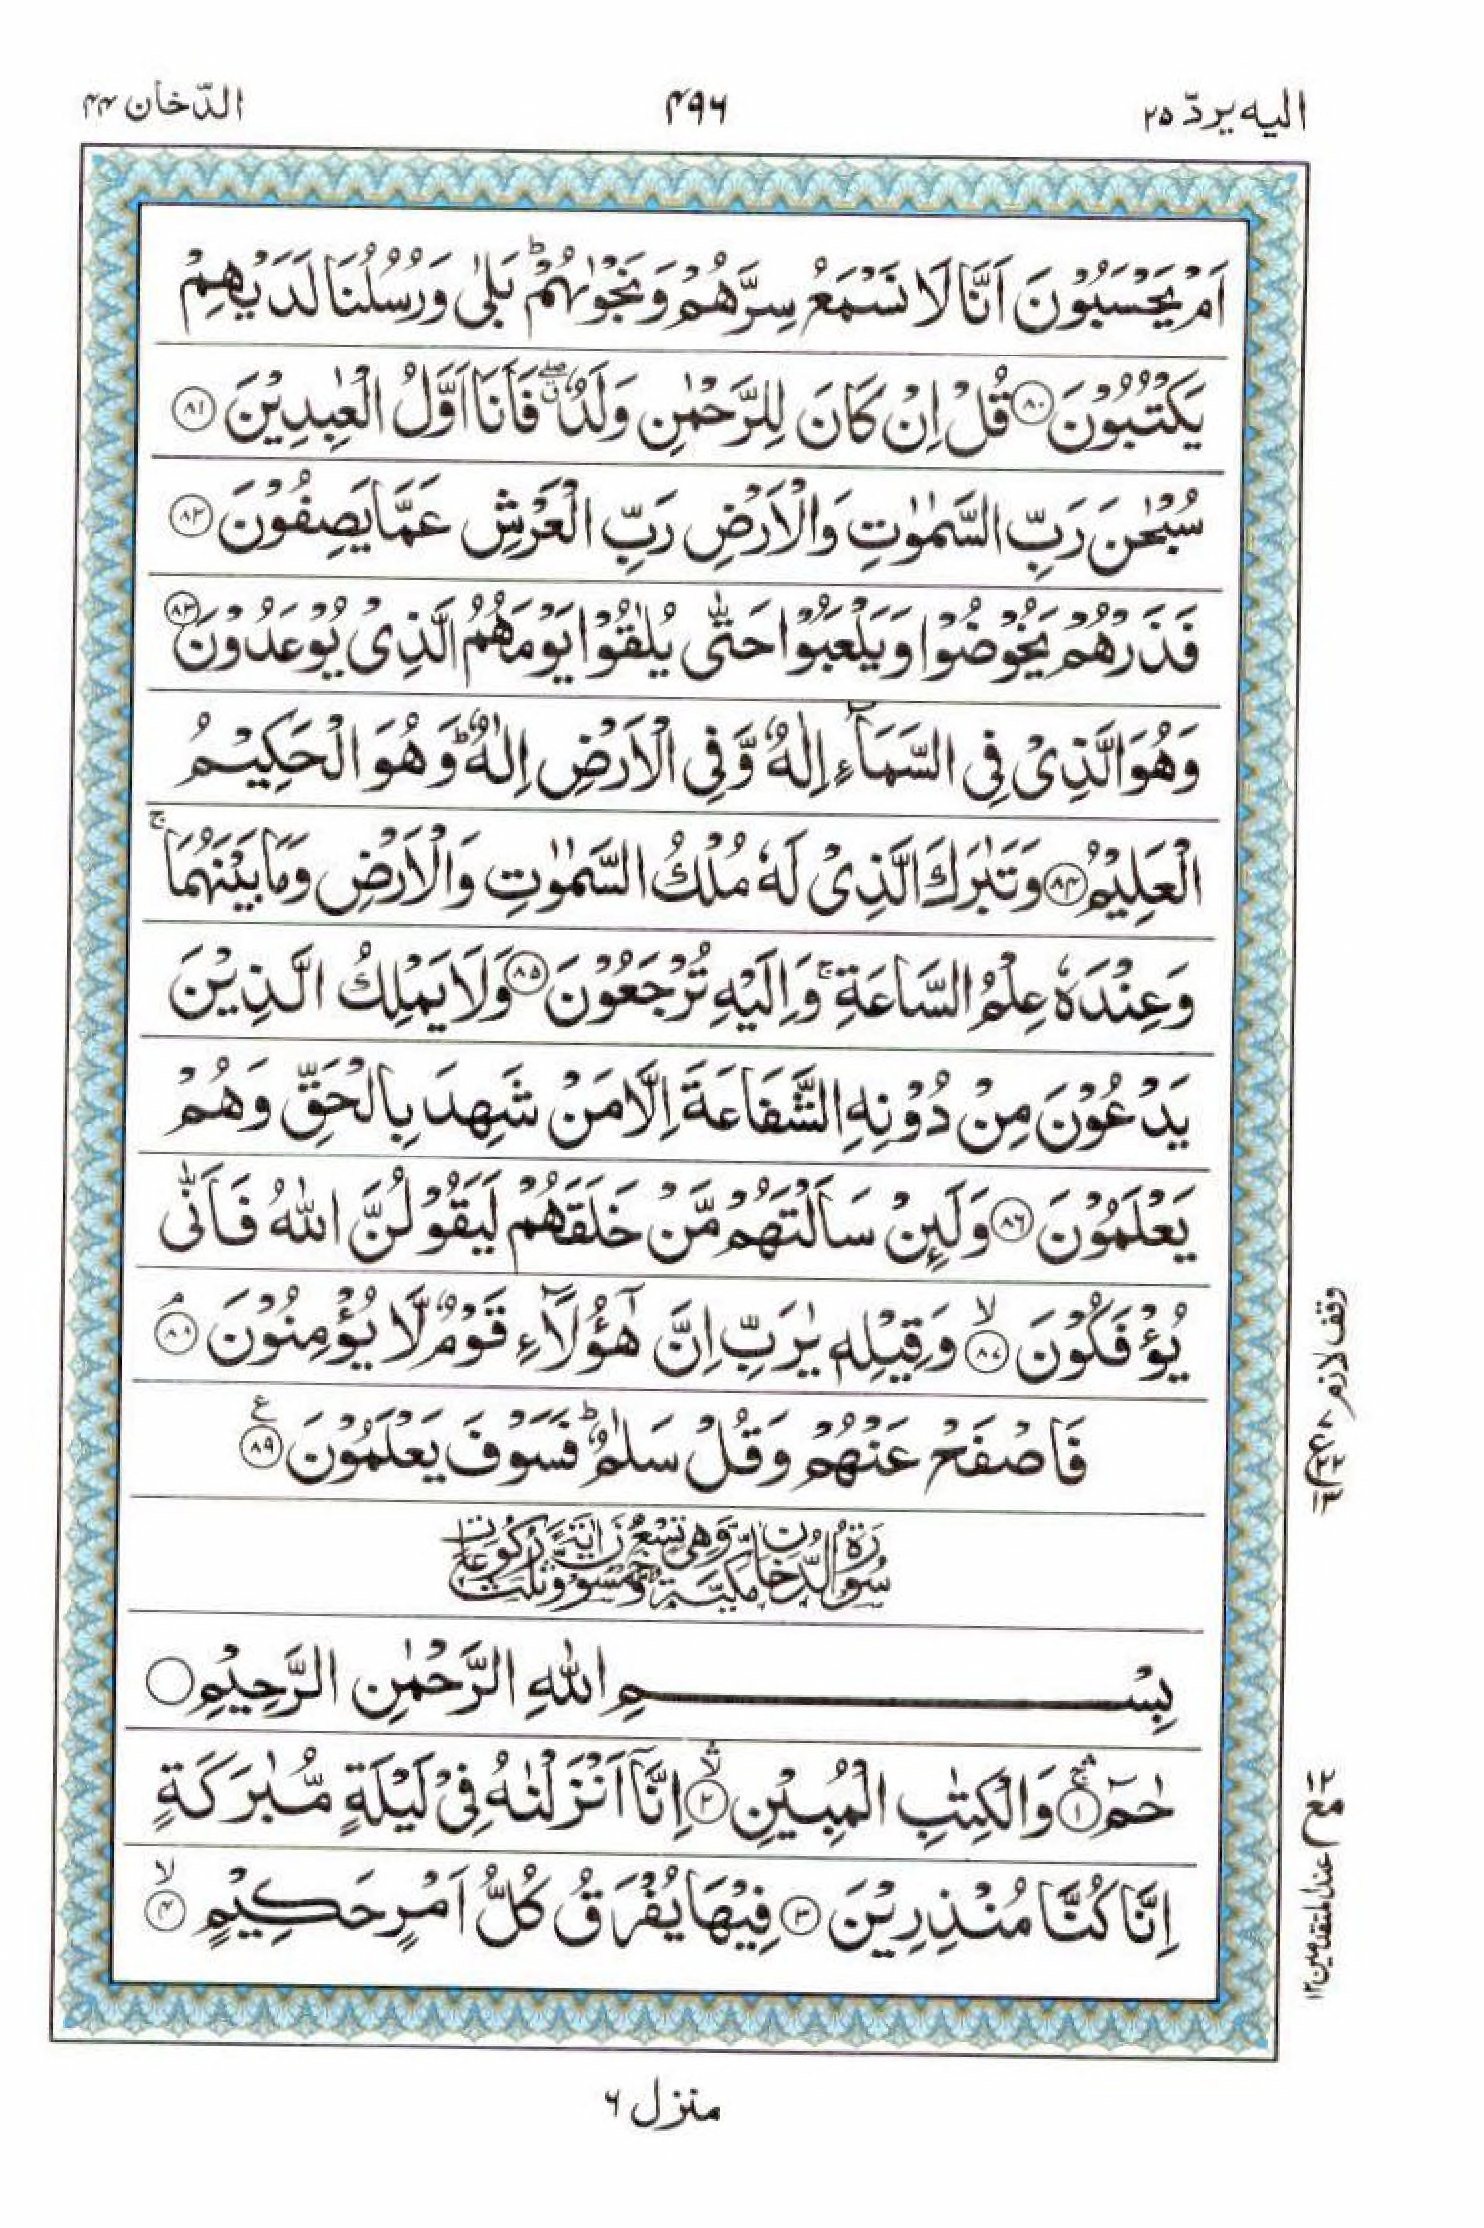 الیه یردّ ۲۵
۴۹۶
الدّخان ۴۴
اَمْ یَحْسَبُوْنَ اَنَّا لَا نَسْمَعُ سِرَّهُمْ وَ نَجْوٰىهُمْ ؕ بَلٰی وَ رُسُلُنَا لَدَیْهِمْ
یَكْتُبُوْنَ ﴿۸۰﴾ قُلْ اِنْ كَانَ لِلرَّحْمٰنِ وَلَدٌ ۖۗ فَاَنَا اَوَّلُ الْعٰبِدِیْنَ ﴿۸۱﴾
سُبْحٰنَ رَبِّ السَّمٰوٰتِ وَ الْاَرْضِ رَبِّ الْعَرْشِ عَمَّا یَصِفُوْنَ ﴿۸۲﴾
فَذَرْهُمْ یَخُوْضُوْا وَ یَلْعَبُوْا حَتّٰی یُلٰقُوْا یَوْمَهُمُ الَّذِیْ یُوْعَدُوْنَ ﴿۸۳﴾
وَ هُوَ الَّذِیْ فِی السَّمَآءِ اِلٰهٌ وَّ فِی الْاَرْضِ اِلٰهٌ ؕ وَ هُوَ الْحَكِیْمُ
الْعَلِیْمُ ﴿۸۴﴾ وَ تَبٰرَكَ الَّذِیْ لَهٗ مُلْكُ السَّمٰوٰتِ وَ الْاَرْضِ وَ مَا بَیْنَهُمَا ۚ
وَ عِنْدَهٗ عِلْمُ السَّاعَةِ ۚ وَ اِلَیْهِ تُرْجَعُوْنَ ﴿۸۵﴾ وَ لَا یَمْلِكُ الَّذِیْنَ
یَدْعُوْنَ مِنْ دُوْنِهِ الشَّفَاعَةَ اِلَّا مَنْ شَهِدَ بِالْحَقِّ وَ هُمْ
یَعْلَمُوْنَ ﴿۸۶﴾ وَ لَىِٕنْ سَاَلْتَهُمْ مَّنْ خَلَقَهُمْ لَیَقُوْلُنَّ اللّٰهُ فَاَنّٰی
یُؤْفَكُوْنَ ۙ﴿۸۷﴾ وَ قِیْلِهٖ یٰرَبِّ اِنَّ هٰۤؤُلَآءِ قَوْمٌ لَّا یُؤْمِنُوْنَ ۘ﴿۸۸﴾
فَاصْفَحْ عَنْهُمْ وَ قُلْ سَلٰمٌ ؕ فَسَوْفَ یَعْلَمُوْنَ ﴿۸۹﴾ ع
سُوْرَةُ الدُّخَانِ مَكِّیَّةٌ وَّهِیَ تِسْعٌ وَّخَمْسُوْنَ اٰیَةً وَّثَلٰثُ رُكُوْعَاتٍ
بِسْمِ اللّٰهِ الرَّحْمٰنِ الرَّحِیْمِ
حٰمٓ ۚۛ﴿۱﴾ وَ الْكِتٰبِ الْمُبِیْنِ ۙۛ﴿۲﴾ اِنَّاۤ اَنْزَلْنٰهُ فِیْ لَیْلَةٍ مُّبٰرَكَةٍ
اِنَّا كُنَّا مُنْذِرِیْنَ ﴿۳﴾ فِیْهَا یُفْرَقُ كُلُّ اَمْرٍ حَكِیْمٍ ۙ﴿۴﴾
وقف لازم
مع عند المتقدمین ۱۲
منزل ۶